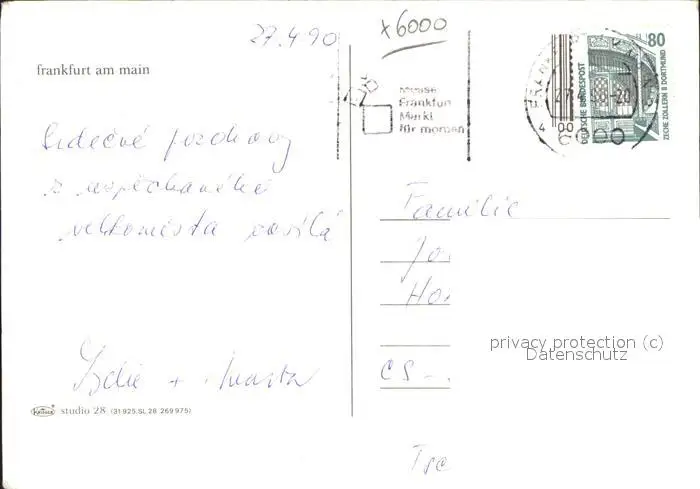 27.4.90
x6000
frankfurt am main
Messe
Frankfurt
Markt
für morgen
80
DEUTSCHE BUNDESPOST
ZECHE ZOLLERN II DORTMUND
FRANKFURT
Srdečné pozdravy
z uspěchaného
velkoměsta posílá
+ Marta
Familie
Jo
Ho
CS-
privacy protection (c)
Datenschutz
Tsc
KRÜGER studio 28 (31 925.SL 28 269 975)